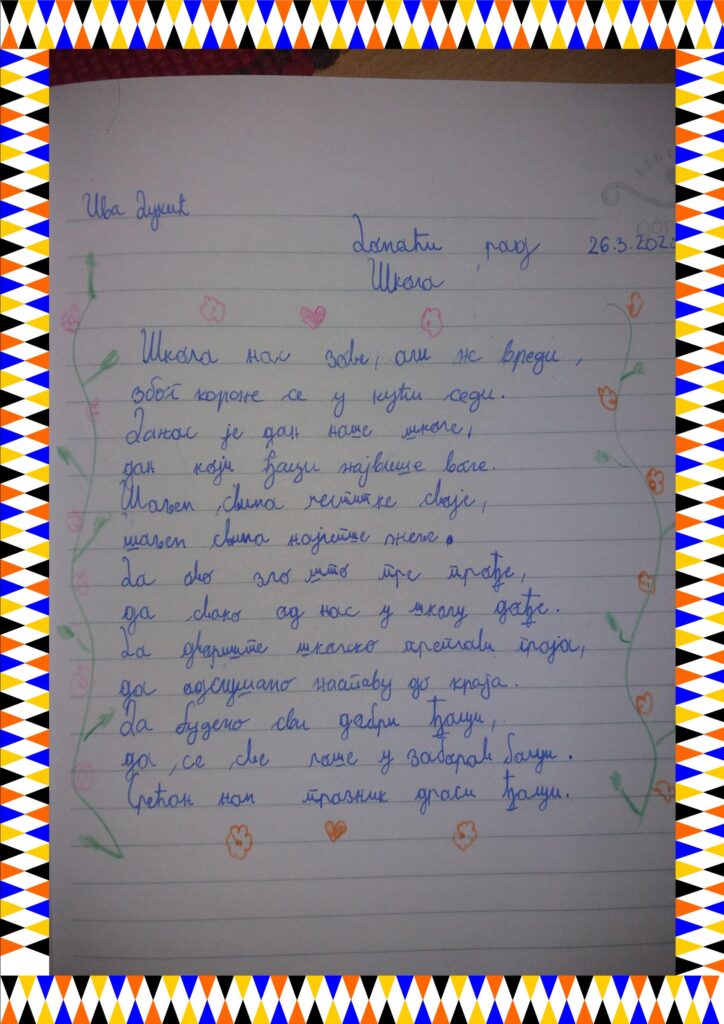 Ива Дукић
Домаћи рад 26.3.202
Школа
Школа нас зове, али не вреди,
због короне се у кући седи.
Данас је дан наше школе,
дан који ђаци највише воле.
Шаљем свима честитке своје,
шаљем свима најлепше жеље.
Да ово зло што пре прође,
да свако од нас у школу дође.
Да двориште школско преплави граја,
да одслушамо наставу до краја.
Да будемо сви добри ђаци,
да се све лоше у заборав баци.
Срећан нам празник драги ђаци.